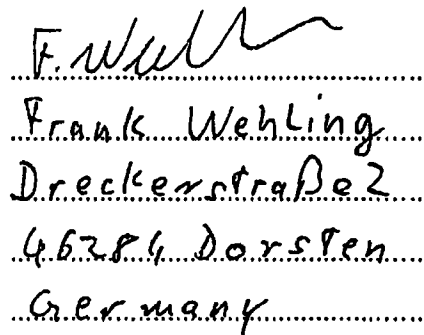 F. Wehl
Frank Wehling
Dreckerstraße 2
46284 Dorsten
Germany